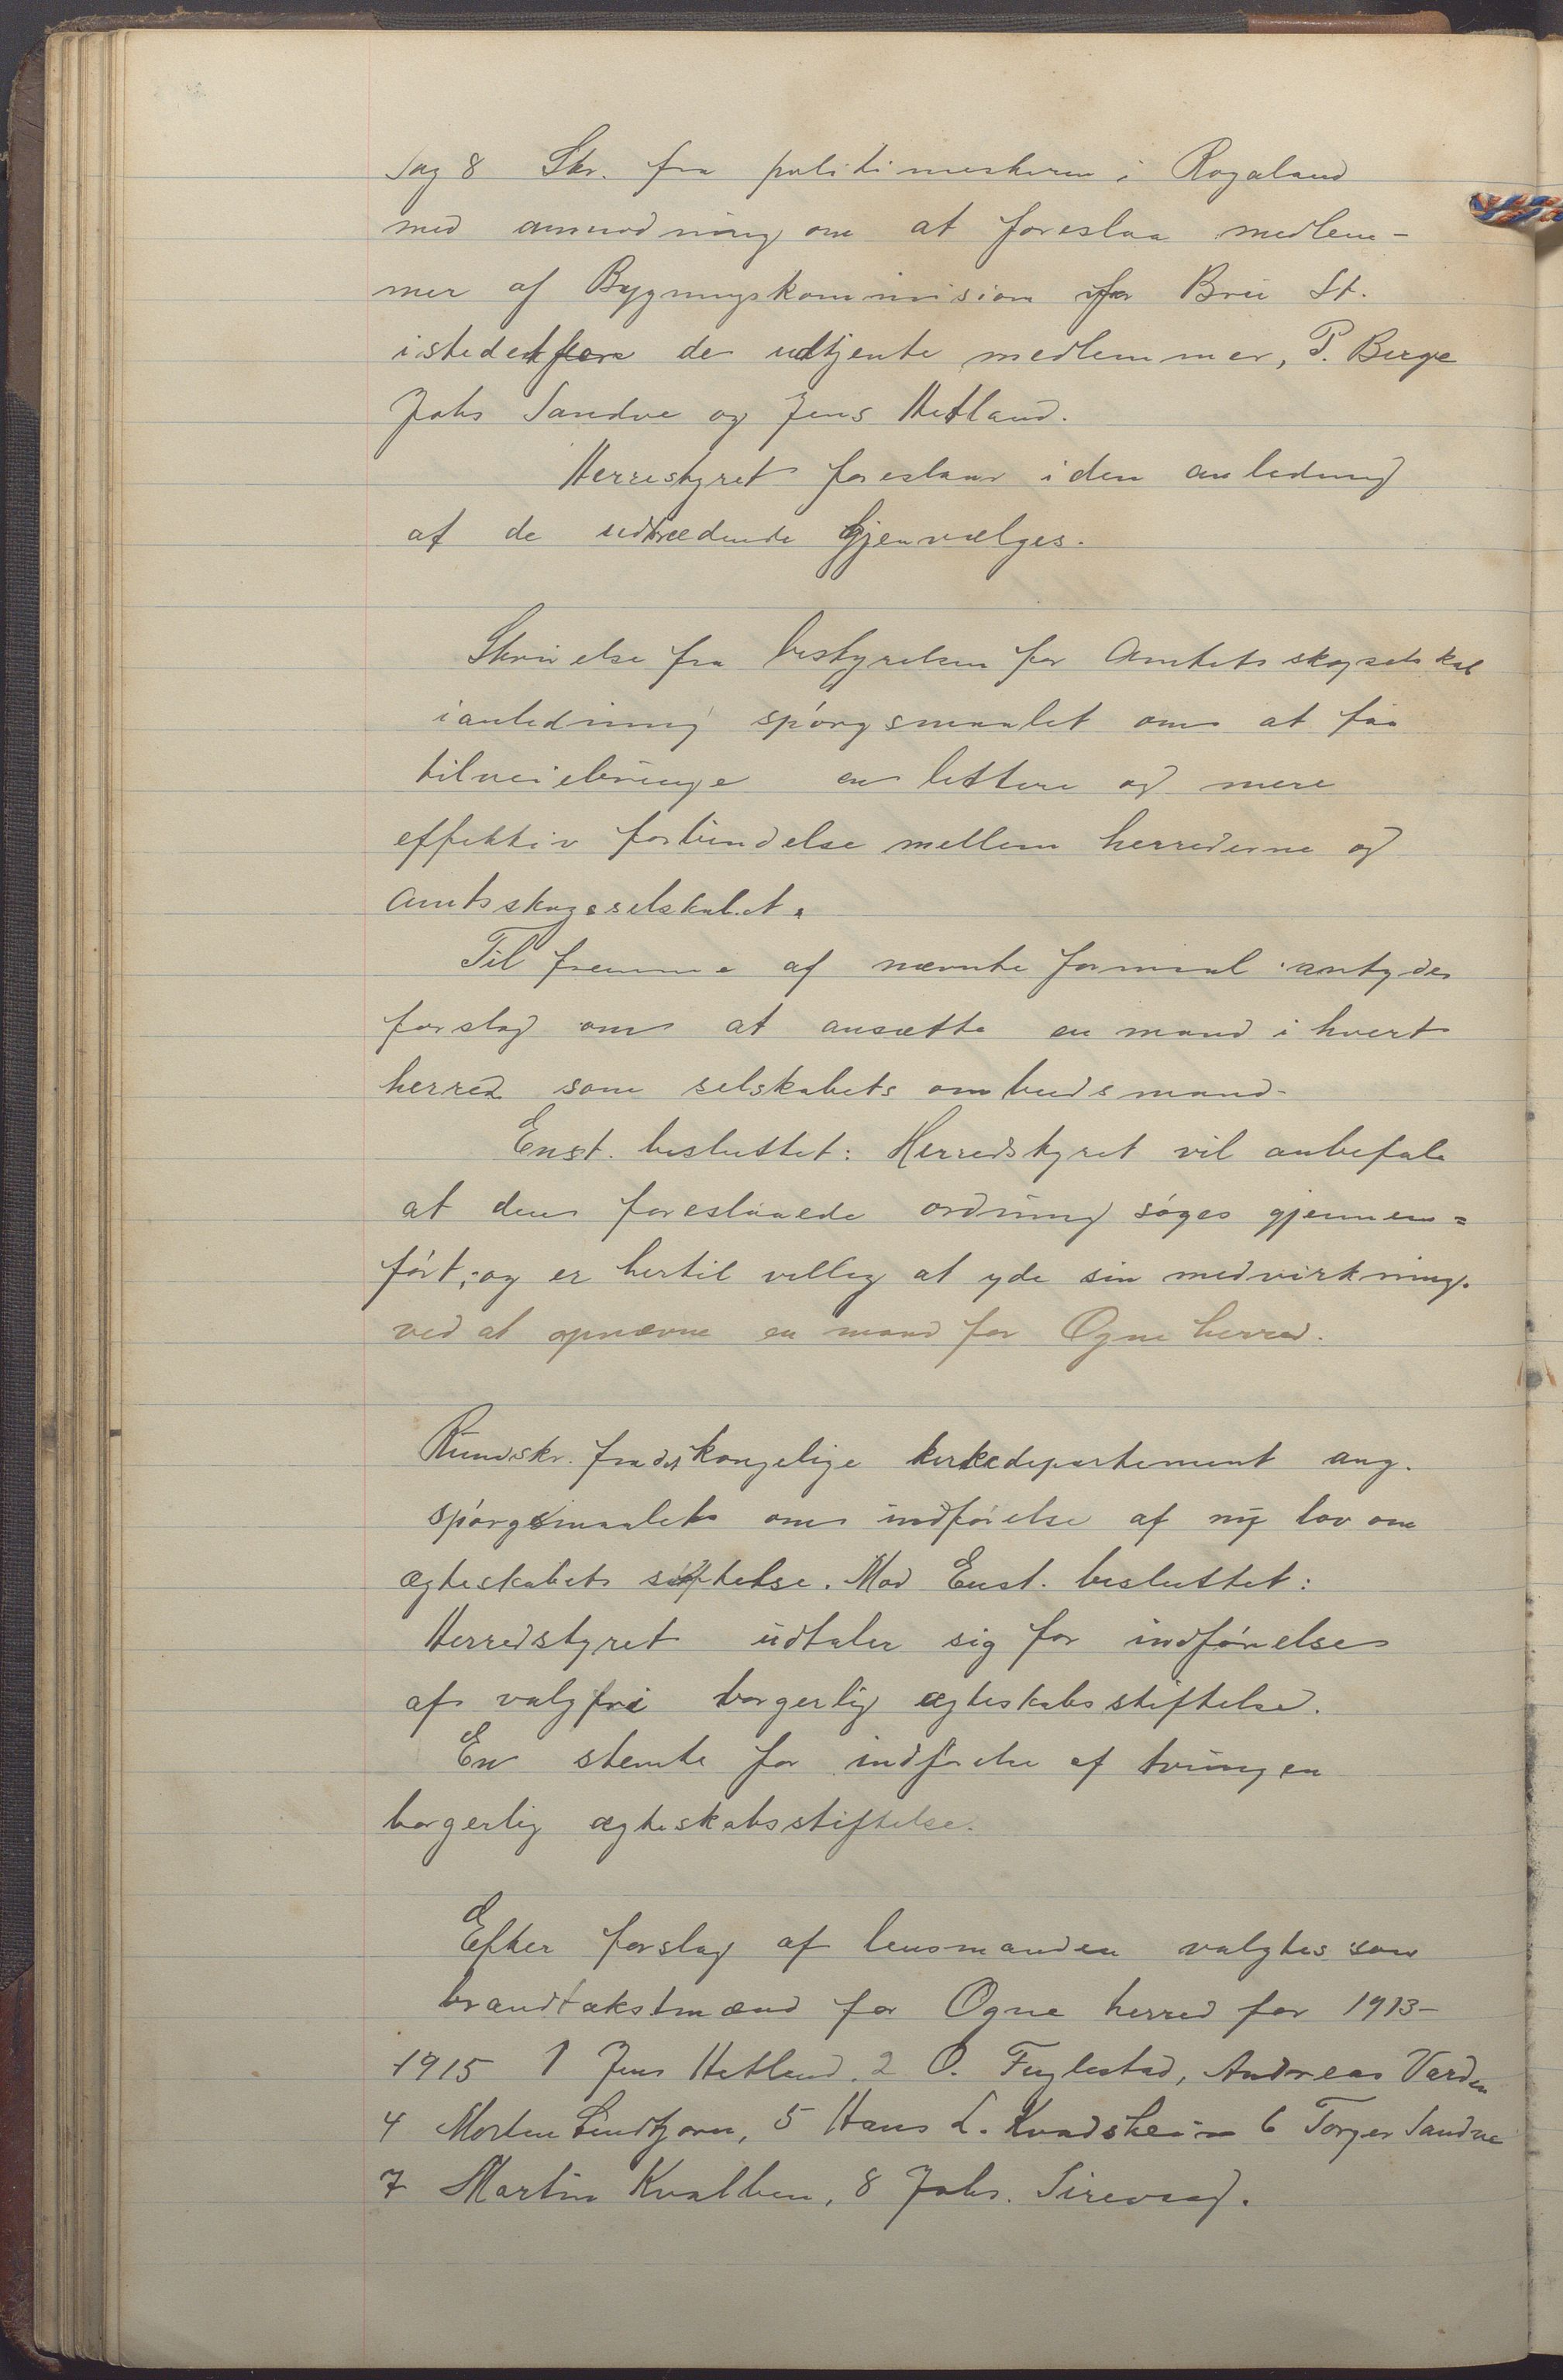 Sag 8 Skr. fra politimesteren i Rogaland
med anmodning om at foreslaa medlem-
mer af Bygningskommision for Bru St.
istedetfor de udtjente medlemmer, P. Berge
Johs Sandve og Jens Hetland.
Herrestyret foreslaar i den anledning
af de udtrædende gjenvælges.
Skrivelse fra bestyrelsen for Amtets skogselskab
i anledning spørgsmaalet om at faa
tilveiebringe en lettere og mere
effektiv forbindelse mellem herrederne og
Amtsskogselskabet.
Til fremme af nævnte formaal antydes
forslag om at ansætte en mand i hvert
herred som selskabets ombudsmand.
Enst. besluttet: Herredstyret vil anbefale
at den foreslaaede ordning søges gjennem=
ført, og er hertil villig at yde sin medvirkning.
ved at opnævne en mand for Ogne herred.
Rundskr. fra det kongelige kirkedepartement ang.
spørgsmaalet om indførelse af ny lov om
ægteskabets stiftelse. Mod Enst. besluttet:
Herredstyret udtaler sig for indførelse
af valgfri borgerlig ægteskabsstiftelse.
En stemte for indførelse af tvungen
borgerlig ægteskabsstiftelse.
Efter forslag af lensmanden valgtes som
brandtakstmænd for Ogne herred for 1913-
1915 1 Jens Hetland. 2 O. Fuglestad, Andreas Varden
4 Morten Lindtjørn, 5 Hans L. Kvadsheim 6 Torger Sandve
7 Martin Kvalben, 8 Johs. Sirevaag.